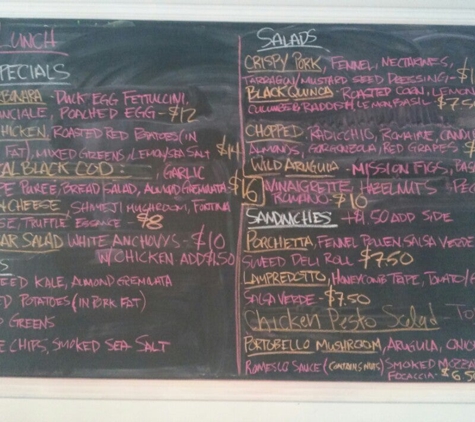 LUNCH
SPECIALS
DUCK EGG FETTUCCINI,
POACHED EGG - $12
CHICKEN, ROASTED RED POTATOES (IN
FAT), MIXED GREENS, LEMON/SEA SALT $14
BLACK COD: GARLIC
PUREE, BREAD SALAD, ALMOND GREMINATA $16
CHEESE, SHAMEJI MUSHROOM, FONTINA
TRUFFLE ESSENCE - $8
SALAD WHITE ANCHOVYS - $10
W/CHICKEN ADD $4.50
KALE, ALMOND GREMINATA
POTATOES (IN PORK FAT)
GREENS
CHIPS, SMOKED SEA SALT
SALADS
CRISPY PORK, FENNEL, NECTARINES,
TARRAGON/MUSTARD SEED DRESSING - $
BLACK QUINOA - ROASTED CORN, LEMON
CUCUMBER RADDISH LEMON BASIL - $7.50
CHOPPED: RADICCHIO, ROMAINE,
ALMONDS, GORGONZOLA, RED GRAPES $
WILD ARUGULA - MISSION FIGS,
VINAIGRETTE, HAZELNUTS
ROMANO - $10
SANDWICHES +4.50 ADD SIDE
PORCHETTA, FENNEL POLLEN SALSA VERDE
SWEED DELI ROLL - $7.50
LAMPREDOTTO, HONEYCOMB TRIPE,
SALSA VERDE - $7.50
Chicken Pesto Salad
PORTOBELLO MUSHROOM, ARUGULA,
ROMESCO SAUCE (CONTAINS NUTS) SMOKED
FOCACCIA - $6.50